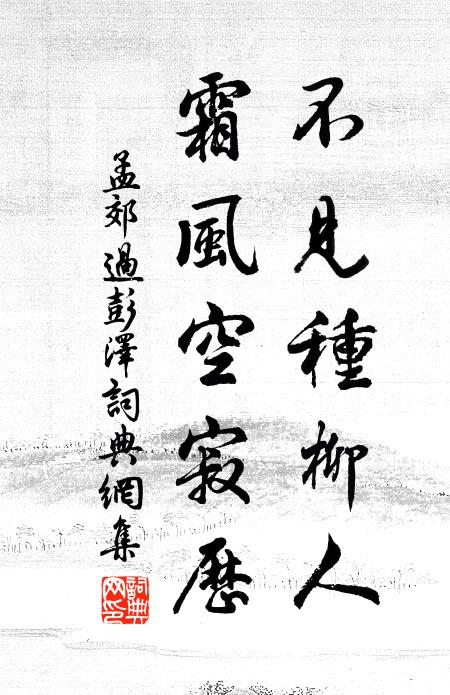 不見種柳人
霜風空寂歷
孟郊過彭澤詞典網集
詞典網印